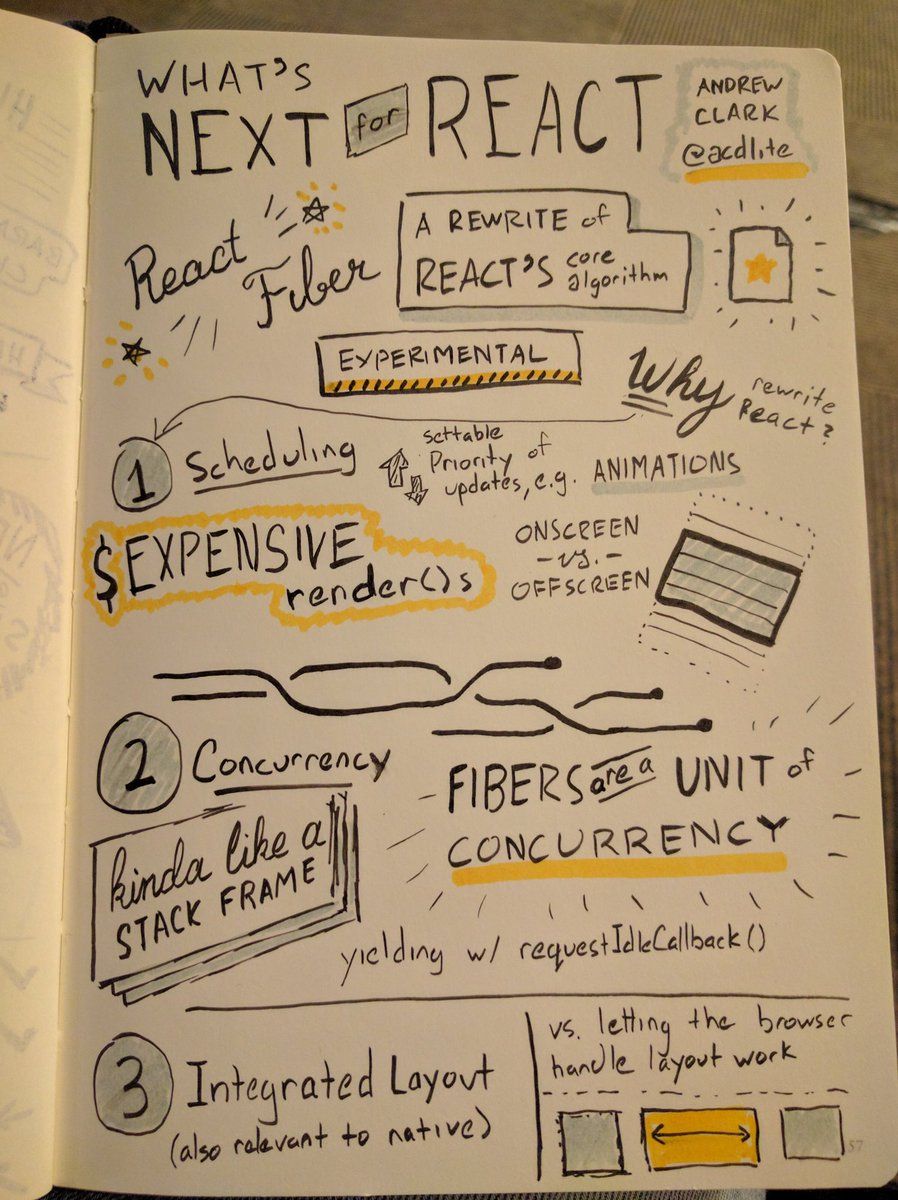 WHAT'S
NEXT for REACT
ANDREW
CLARK
@acdlite
React
Fiber
A REWRITE of
REACT'S core
algorithm
EXPERIMENTAL
Why rewrite
React?
1 Scheduling
settable
Priority of
updates, e.g. ANIMATIONS
$EXPENSIVE
render()s
ONSCREEN
-vs.-
OFFSCREEN
2 Concurrency
kinda like a
STACK FRAME
FIBERS are a UNIT of
CONCURRENCY
yielding w/ requestIdleCallback()
3 Integrated Layout
(also relevant to native)
vs. letting the browser
handle layout work
57